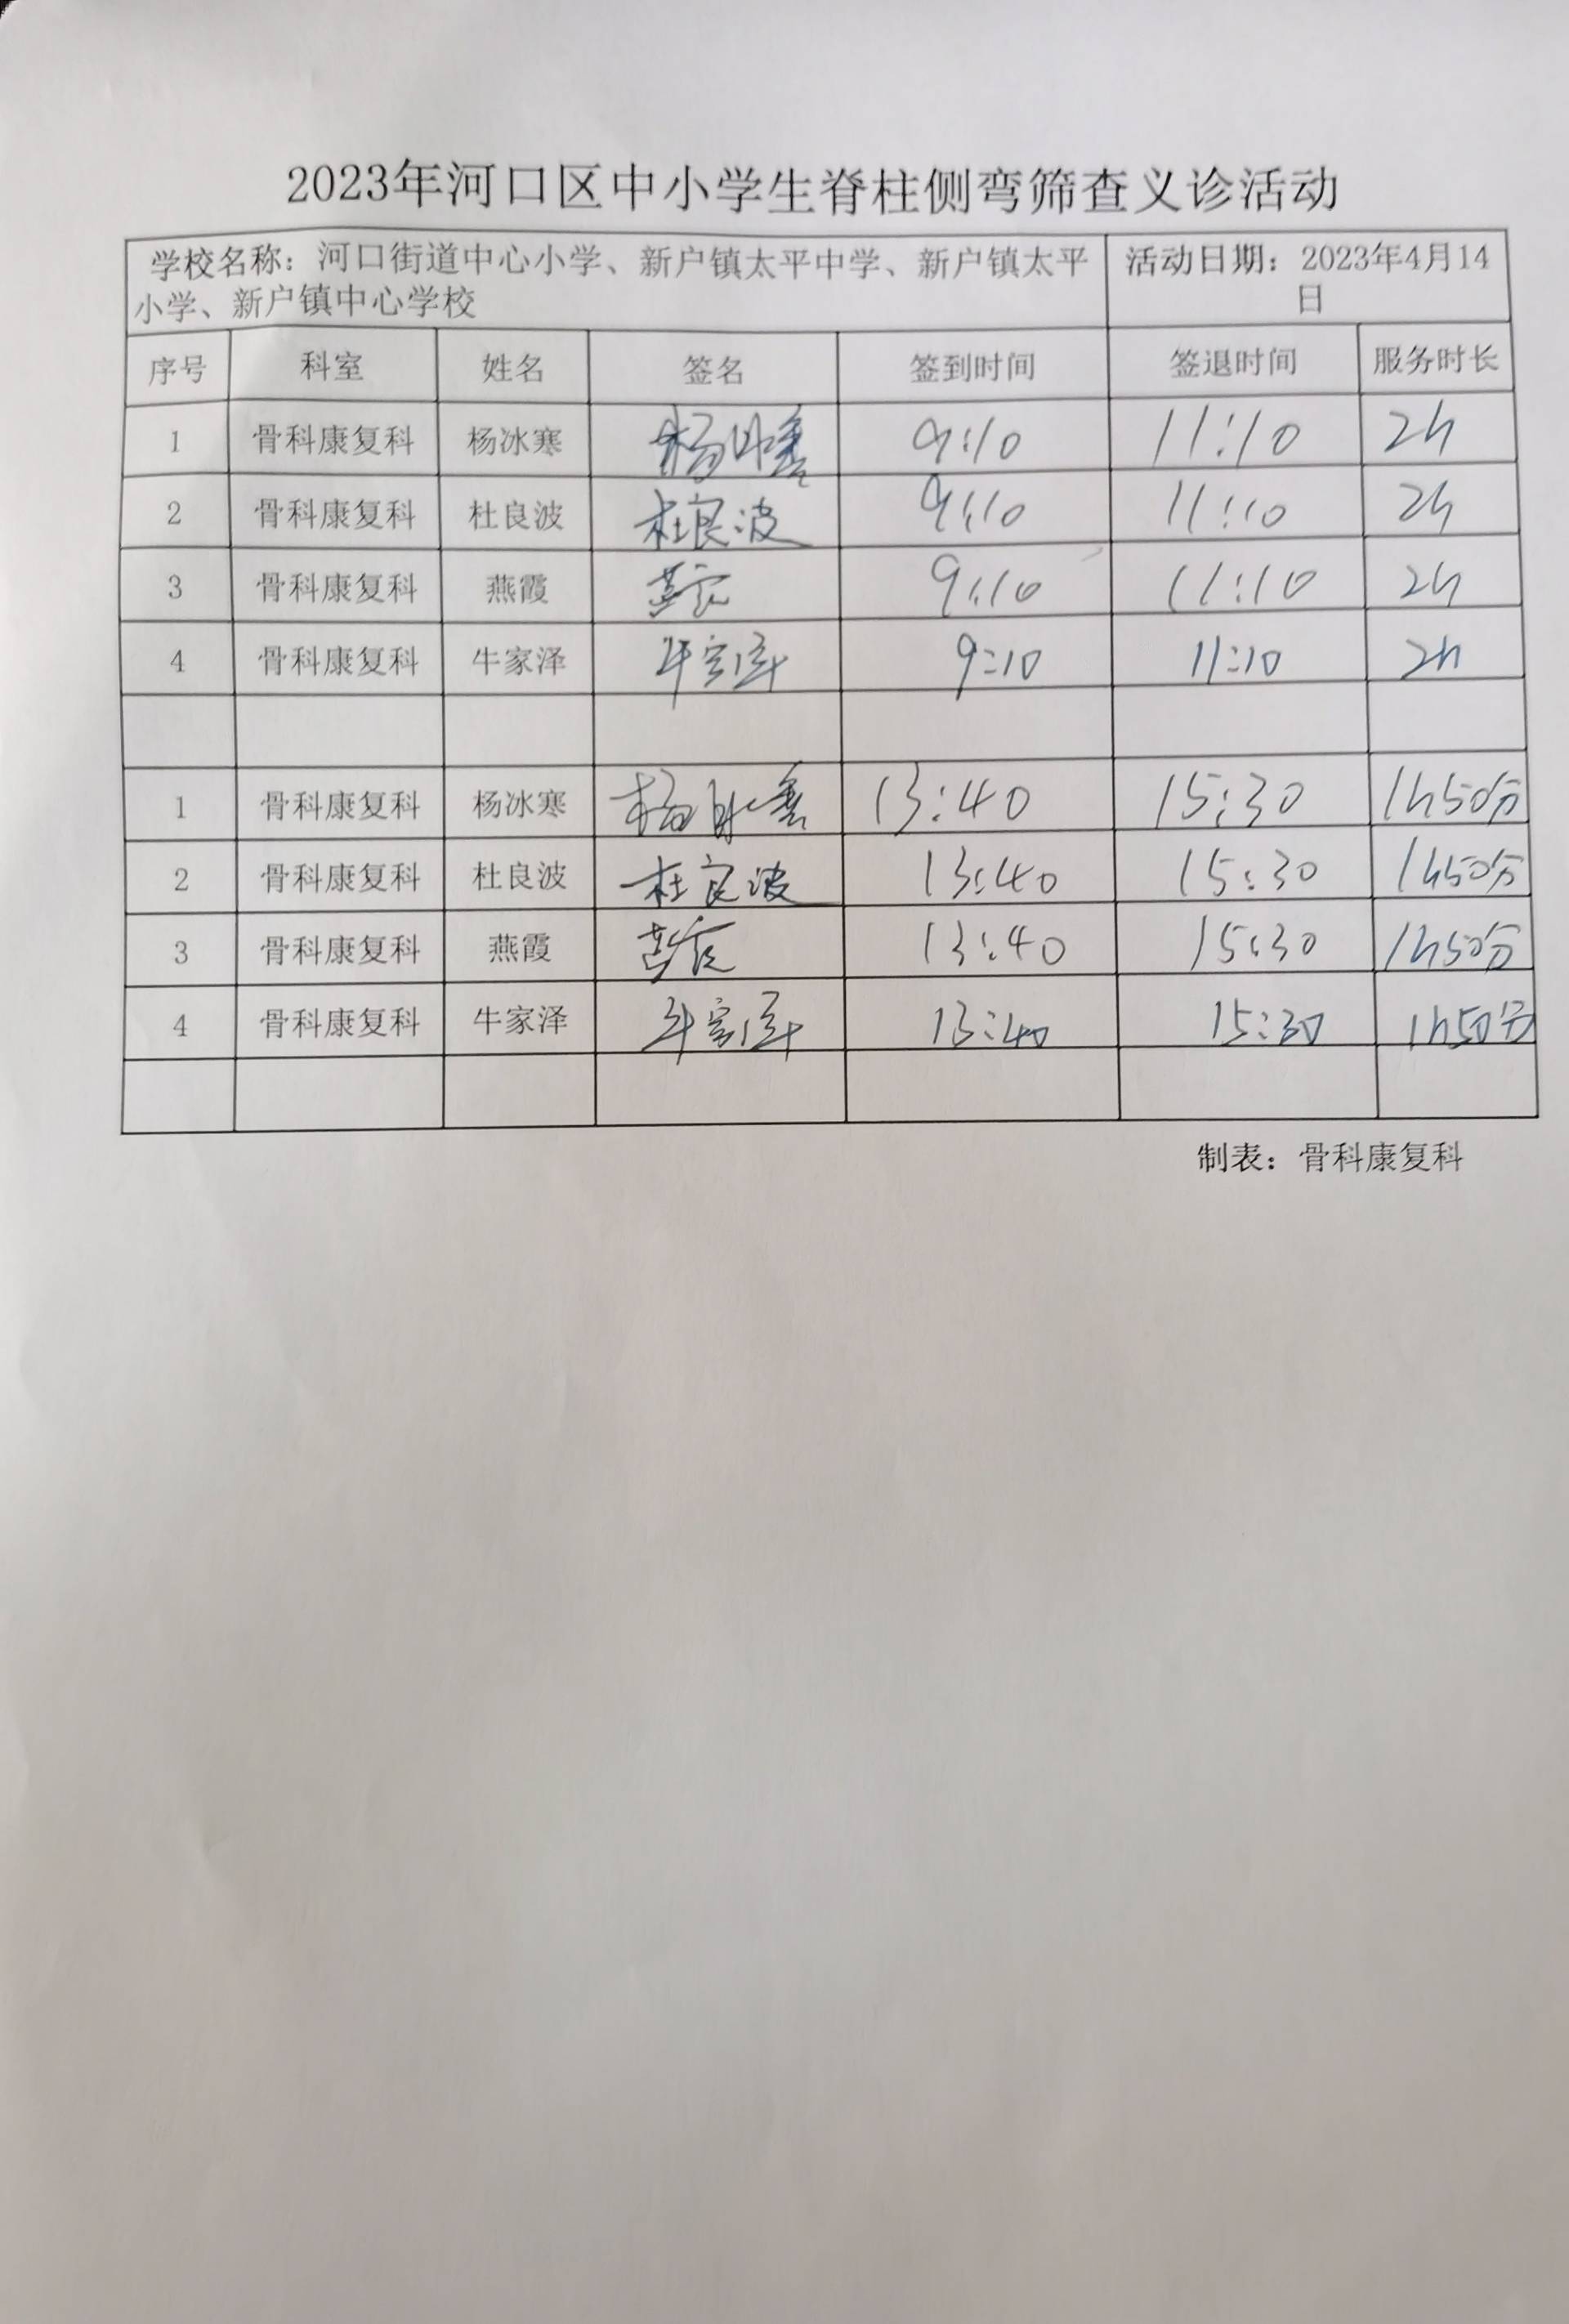 2023年河口区中小学生脊柱侧弯筛查义诊活动
学校名称：河口街道中心小学、新户镇太平中学、新户镇太平
小学、新户镇中心学校
活动日期：2023年4月14
日
序号 科室 姓名 签名 签到时间 签退时间 服务时长
1 骨科康复科 杨冰寒 杨冰寒 9:10 11:10 2h
2 骨科康复科 杜良波 杜良波 9:10 11:10 2h
3 骨科康复科 燕霞 燕霞 9:10 11:10 2h
4 骨科康复科 牛家泽 牛家泽 9:10 11:10 2h
1 骨科康复科 杨冰寒 杨冰寒 13:40 15:30 1h50分
2 骨科康复科 杜良波 杜良波 13:40 15:30 1h50分
3 骨科康复科 燕霞 燕霞 13:40 15:30 1h50分
4 骨科康复科 牛家泽 牛家泽 13:40 15:30 1h50分
制表：骨科康复科